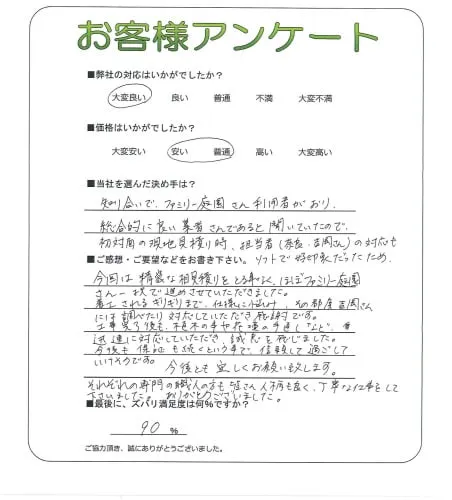 お客様アンケート
■弊社の対応はいかがでしたか?
大変良い 良い 普通 不満 大変不満
■価格はいかがでしたか?
大変安い 安い 普通 高い 大変高い
■当社を選んだ決め手は?
知り合いで、ファミリー庭園さん利用者がおり、
総合的に良い業者さんであると聞いていたので。
初対面の現地見積り時、担当者(奈良・吉岡さん)の対応も
■ご感想・ご要望などをお書き下さい。ソフトで好印象だったため、
今回は相見積りをとる事なく、ほぼファミリー庭園
さん一択で進めさせていただきました。
着工されるギリギリまで、仕様に悩み、その都度吉岡さん
には調べたり対応していただき感謝です。
工事完了後も、植木の事や の手直しなど、
迅速に対応していただき、誠意を感じました。
今後も保証も続くという事で、信頼して過ごして
いけそうです。今後とも宜しくお願い致します。
それぞれの専門の職人の方も皆さん人柄も良く、丁寧な仕事をして
下さいました。ありがとうございました。
■最後に、ズバリ満足度は何%ですか?
90 %
ご協力頂き、誠にありがとうございました。